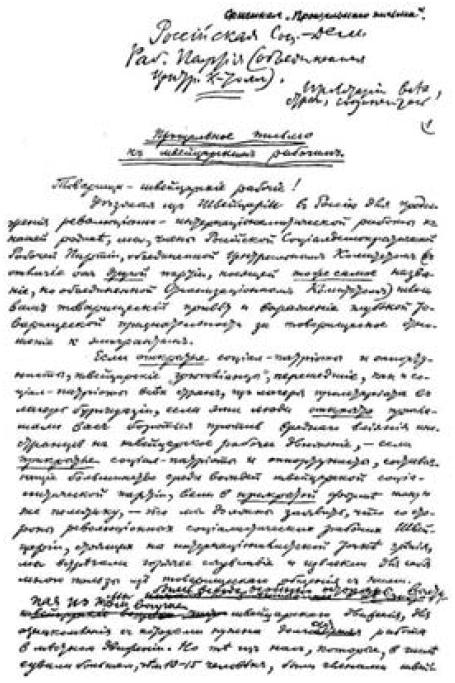 Российская Соц.-Дем.
Раб. Партія (объединенная
Центр. К-том).
Пролетаріи всѣхъ
стран, соединяйтесь
Прощальное письмо
къ швейцарскимъ рабочимъ.
Товарищи-швейцарскіе рабочіе!
Уѣзжая изъ Швейцаріи въ Россію для продол-
женія революціонно-интернаціоналистической работы на
нашей родинѣ, мы, члены Россійской Соціалдемократической
Рабочей Партіи, объединенной Центральным Комитетом (въ
отличіе от другой партіи, носящей тоже самое назва-
ніе, но объединенной Организаціонным Комитетом) шлем
вамъ товарищескій привѣт и выраженіе глубокой то-
варищеской признательности за товарищеское отно-
шеніе к эмигрантам.
Если открытые соціал-патріоты и оппорту-
нисты, швейцарскіе "грютліанцы", перешедшіе, как и со-
ціал-патріоты всѣх стран, изъ лагеря пролетаріата въ
лагерь буржуазіи, если эти люди открыто пригла-
шали вас бороться против вреднаго вліянія ино-
странцев на швейцарское рабочее движеніе, – если
прикрытые соціал-патріоты и оппортунисты, составля-
ющіе большинство среди вождей швейцарской соціа-
листической партіи, вели в прикрытой формѣ такую
же политику, – то мы должны заявить, что со сто-
роны революціонных соціалистических рабочих Швей-
царіи, стоящих на интернаціоналистской точкѣ зрѣнія,
мы встрѣчали горячее сочувствіе и извлекли для себя
много пользы изъ товарищескаго общенія с ними.
швейцарскаго движенія, для
ознакомленія съ которым нужна долгая работа
в мѣстном движеніи. Но тѣ из нас, которые, в числѣ
едва ли большем, чѣм 10-15 человѣкъ, были членами швей-